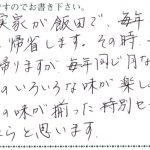 ですのでお書き下さい。
実家が飯田で、毎年
帰省します。その時
帰りますが毎年同じ月な
のいろいろな味が楽し
の味が揃った特別セ
らと思います。